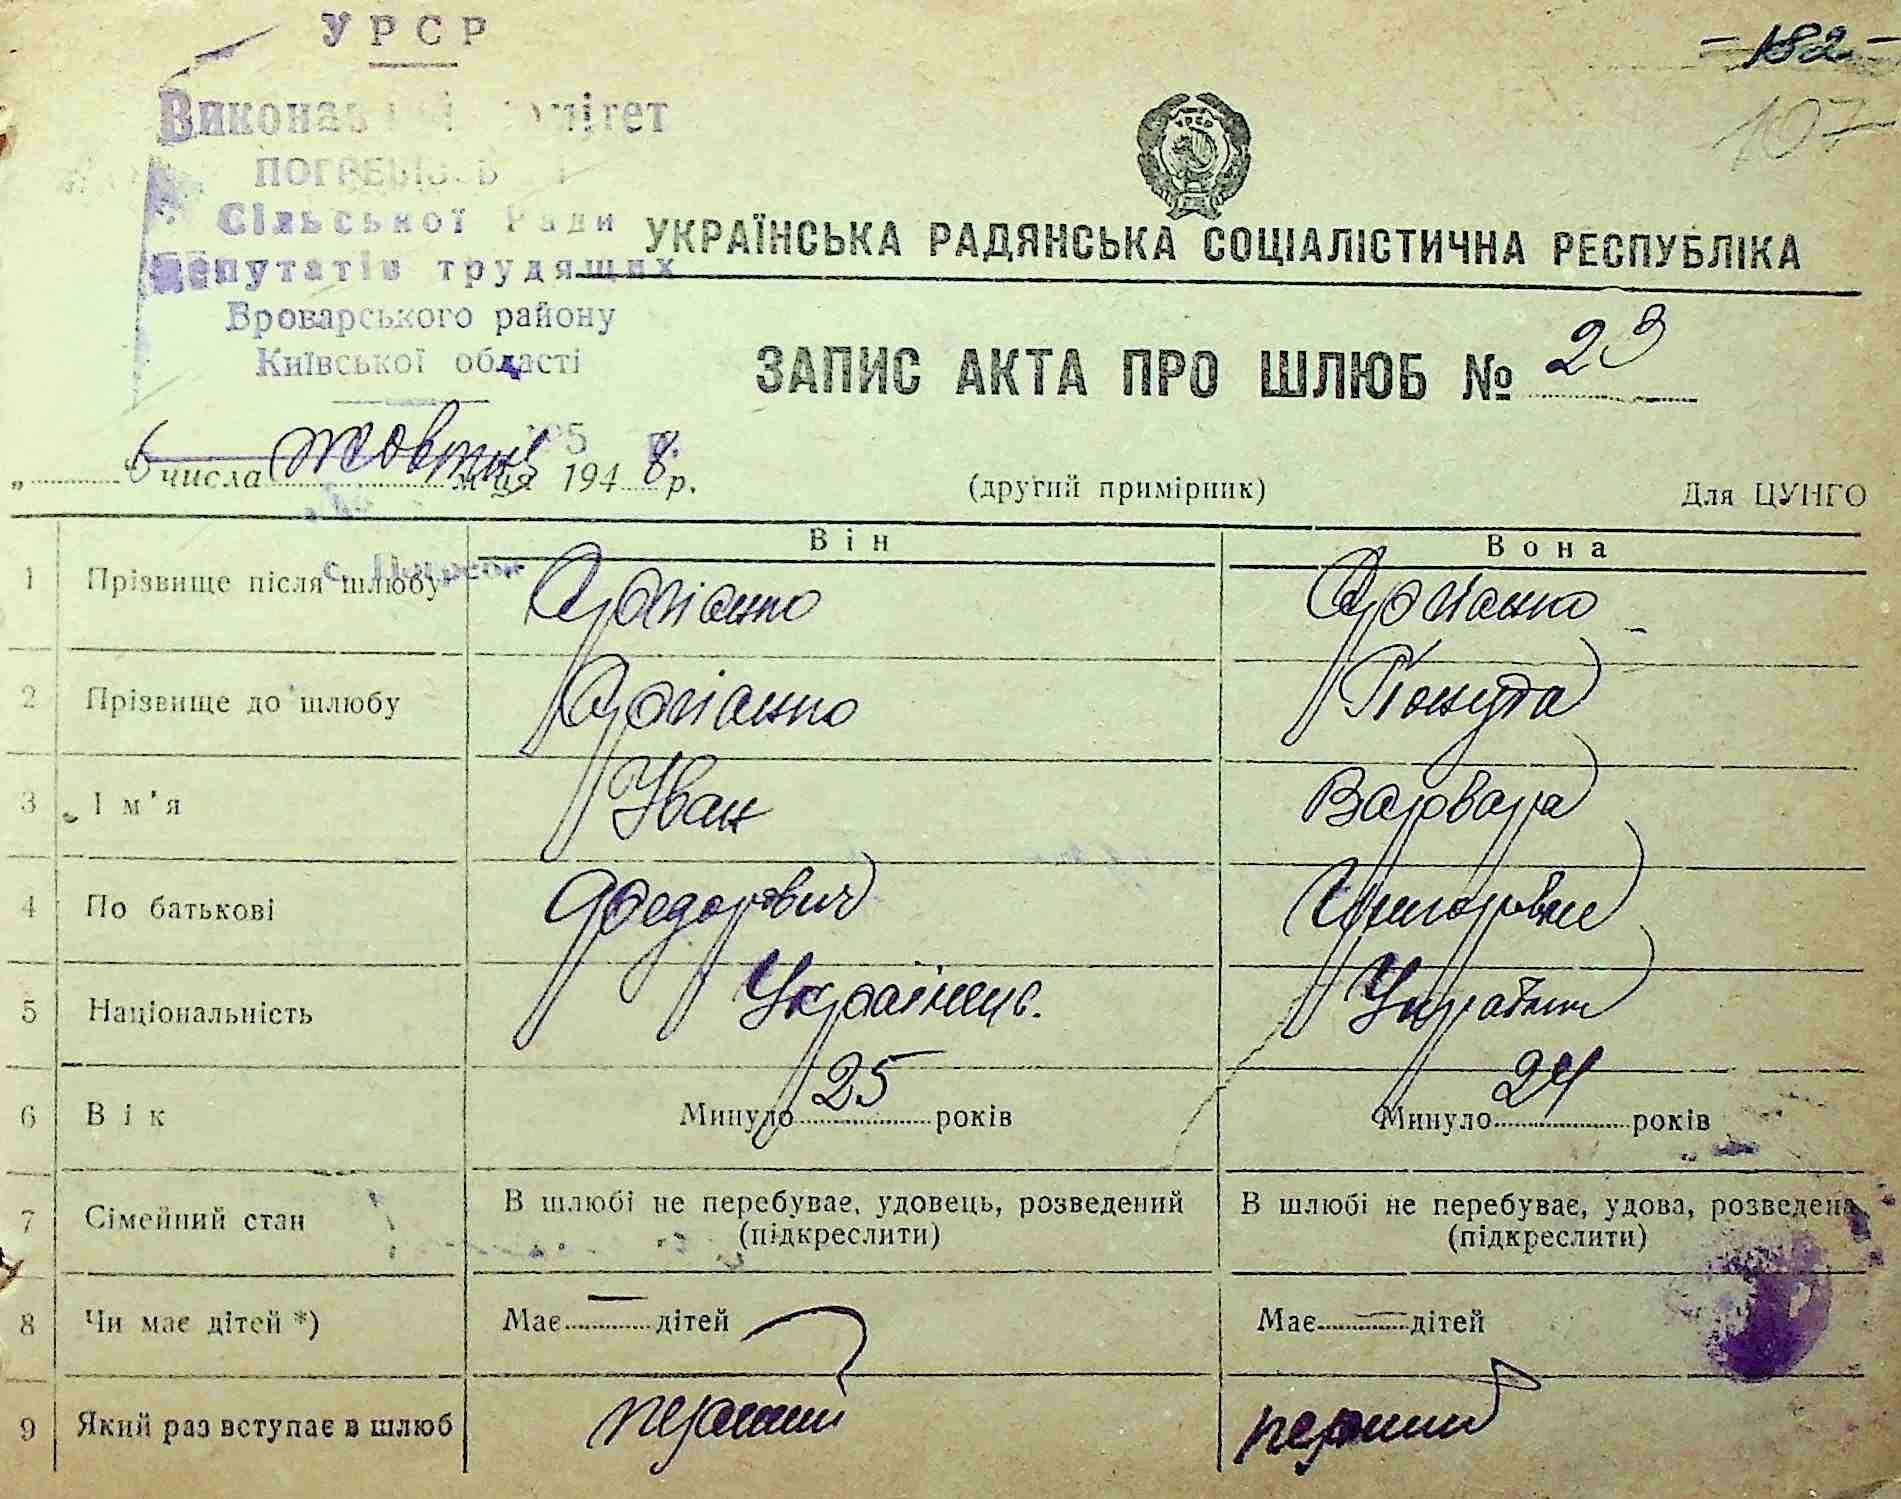 УРСР
- 182 -
107
Виконавчий комітет
ПОГРЕБСЬКОЇ
Сільської Ради
Депутатів трудящих
Броварського району
Київської області
УКРАЇНСЬКА РАДЯНСЬКА СОЦІАЛІСТИЧНА РЕСПУБЛІКА
ЗАПИС АКТА ПРО ШЛЮБ № 23
„ 6 числа жовтня м-ця 1948 р.
(другий примірник)
Для ЦУНГО
Він
Вона
1 Прізвище після шлюбу
2 Прізвище до шлюбу
3 Ім'я Іван Варвара
4 По батькові Федорович Григорівна
5 Національність Українець. Українка
6 Вік Минуло 25 років Минуло 24 років
7 Сімейний стан В шлюбі не перебуває, удовець, розведений (підкреслити) В шлюбі не перебуває, удова, розведена (підкреслити)
8 Чи має дітей *) Має — дітей Має — дітей
9 Який раз вступає в шлюб перший перший